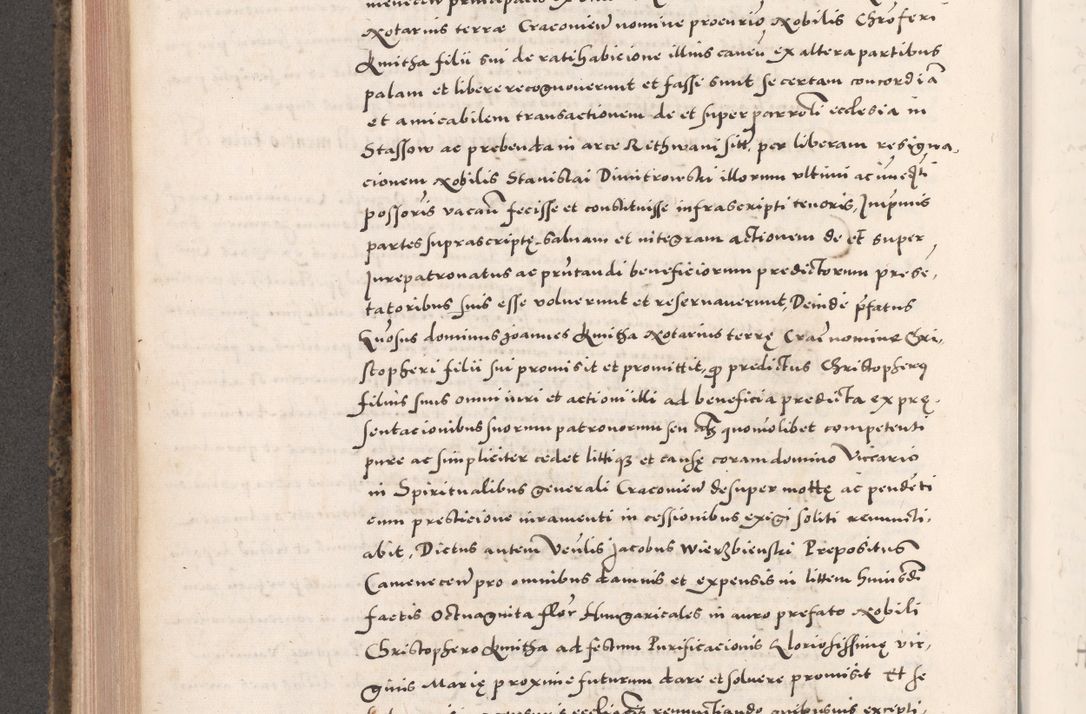 Notarius terræ Cracovien nomine procurio Nobilis Chroferi
Kmitha filii sui de ratihabicione illius caven ex altera partibus
palam et libere recognoverunt et fassi sunt se certam concordiã
et amicabilem transactionem de et super parroli ecclesia in
Stassow ac prebenda in arce Rithwani sitt, per liberam resigna-
cionem Nobilis Stanislai Dimitrowski illorum ultimi ac imediti
possoris vacan fecisse et constituisse infrascripti tenoris, Inprimis
partes suprascriptę salvam et integram actionem de et super
Jurepatronatus ac prntandi beneficiorum predictorum prese,
tatoribus suis esse voluerunt et reservaverunt, Deinde pfatus
dominus Joannes Kmitha Notarius terrę Crac nomine Cri,
stopheri filii sui promisit et promittit, q predictus Christopherus
filius suus omni iuri et actioni illi ad beneficia predicta ex prę-
sentacionibus suorum patronorum seu als quomolibet competenti
pure ac simpliciter cedet littiqz et causę coram domino Viccario
in Spiritualibus generali Cracovien desuper mottę ac pendeti
cum presticione iuramenti in cessionibus exigi soliti renuncti,
abit, Dictus autem Venlis Jacobus Wierzbienski Prepositus
Camenecen pro omnibus damnis et expensis in littem huiusdi
factis Octuaginta flor Hungaricales in auro prefato Nobili
Christophero Kmitha ad festum Purificacionis Gloriosissimę vir,
ginis Marię proxime futurum dare et solvere promisit Et se